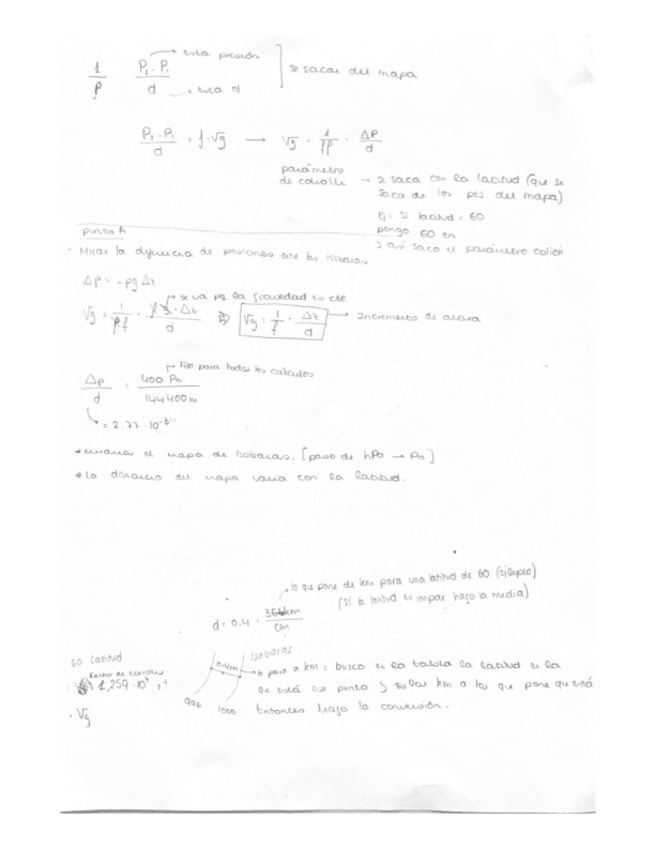 → esta presión
1/ρ P₂-P₁/d ] se sacan del mapa
→ esta d
P₂-P₁/d = f·Vg → Vg = 1/fρ · ΔP/d
parámetro de coriolis → se saca con la latitud (que se
saca de los pts del mapa)
ej: si latitud = 60
pongo 60 en
y así saco el parámetro
punto A
· Mirar la de presiones entre las isobaras
Δp = -ρg Δz
→ se va pq la gravedad es cte
Vg = 1/ρf · ρg·Δz/d ⇒ Vg = 1/f · Δz/d → Incremento de altura
Δp/d = 400 Pa/144400 m → fijo para todos los cálculos
= 2.77·10⁻³
* el mapa de isobaras. [paso de hPa → Pa]
* la distancia del mapa varía con la latitud.
→ lo que pone de km para una latitud de 60 (ejemplo)
(si la latitud es impar hago la media)
d = 0.4 · km/cm
60 Latitud
factor de coriolis
1,259·10⁴ s⁻¹
· Vg
Isobaras
0.4cm
996 1000
→ lo paso a km: busco en la tabla la latitud en la
que está ese punto y los km a los que pone que está
Entonces hago la conversión.